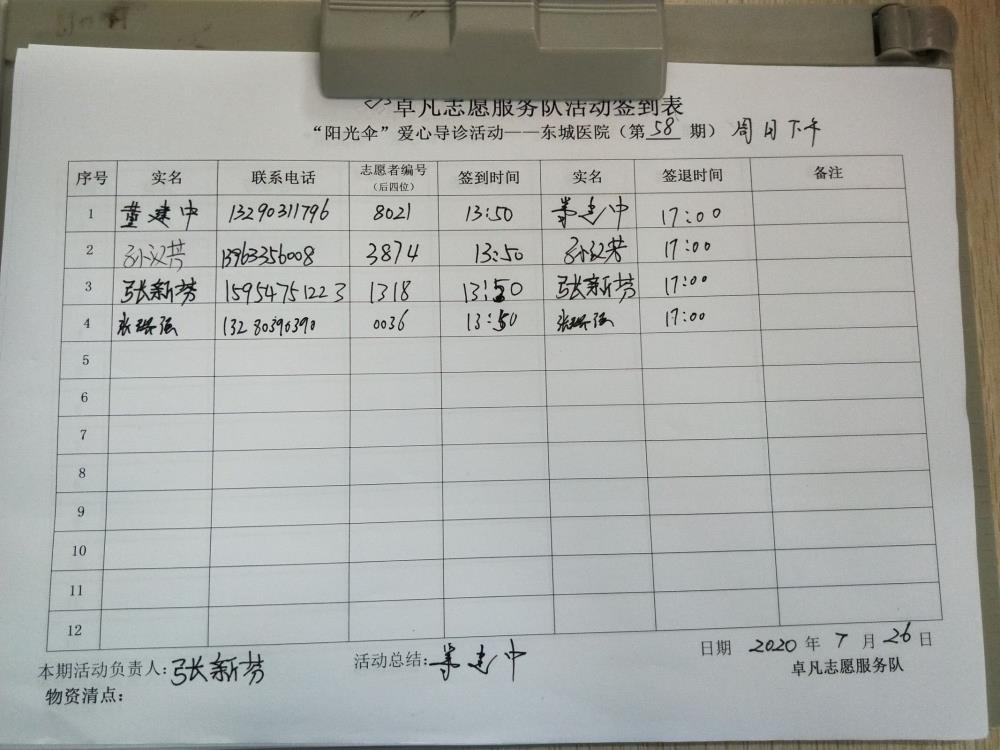 卓凡志愿服务队活动签到表
“阳光伞”爱心导诊活动——东城医院（第58期） 周日下午
序号 实名 联系电话 志愿者编号（后四位） 签到时间 实名 签退时间 备注
1 董建中 13290311796 8021 13:50 董建中 17:00
2 孙汉芳 13963356008 3874 13:50 孙汉芳 17:00
3 张新芬 15954751223 1318 13:50 张新芬 17:00
4 张 13280390390 0036 13:50 张 17:00
5
6
7
8
9
10
11
12
本期活动负责人：张新芬 活动总结：董建中 日期 2020 年 7 月 26 日
卓凡志愿服务队
物资清点：